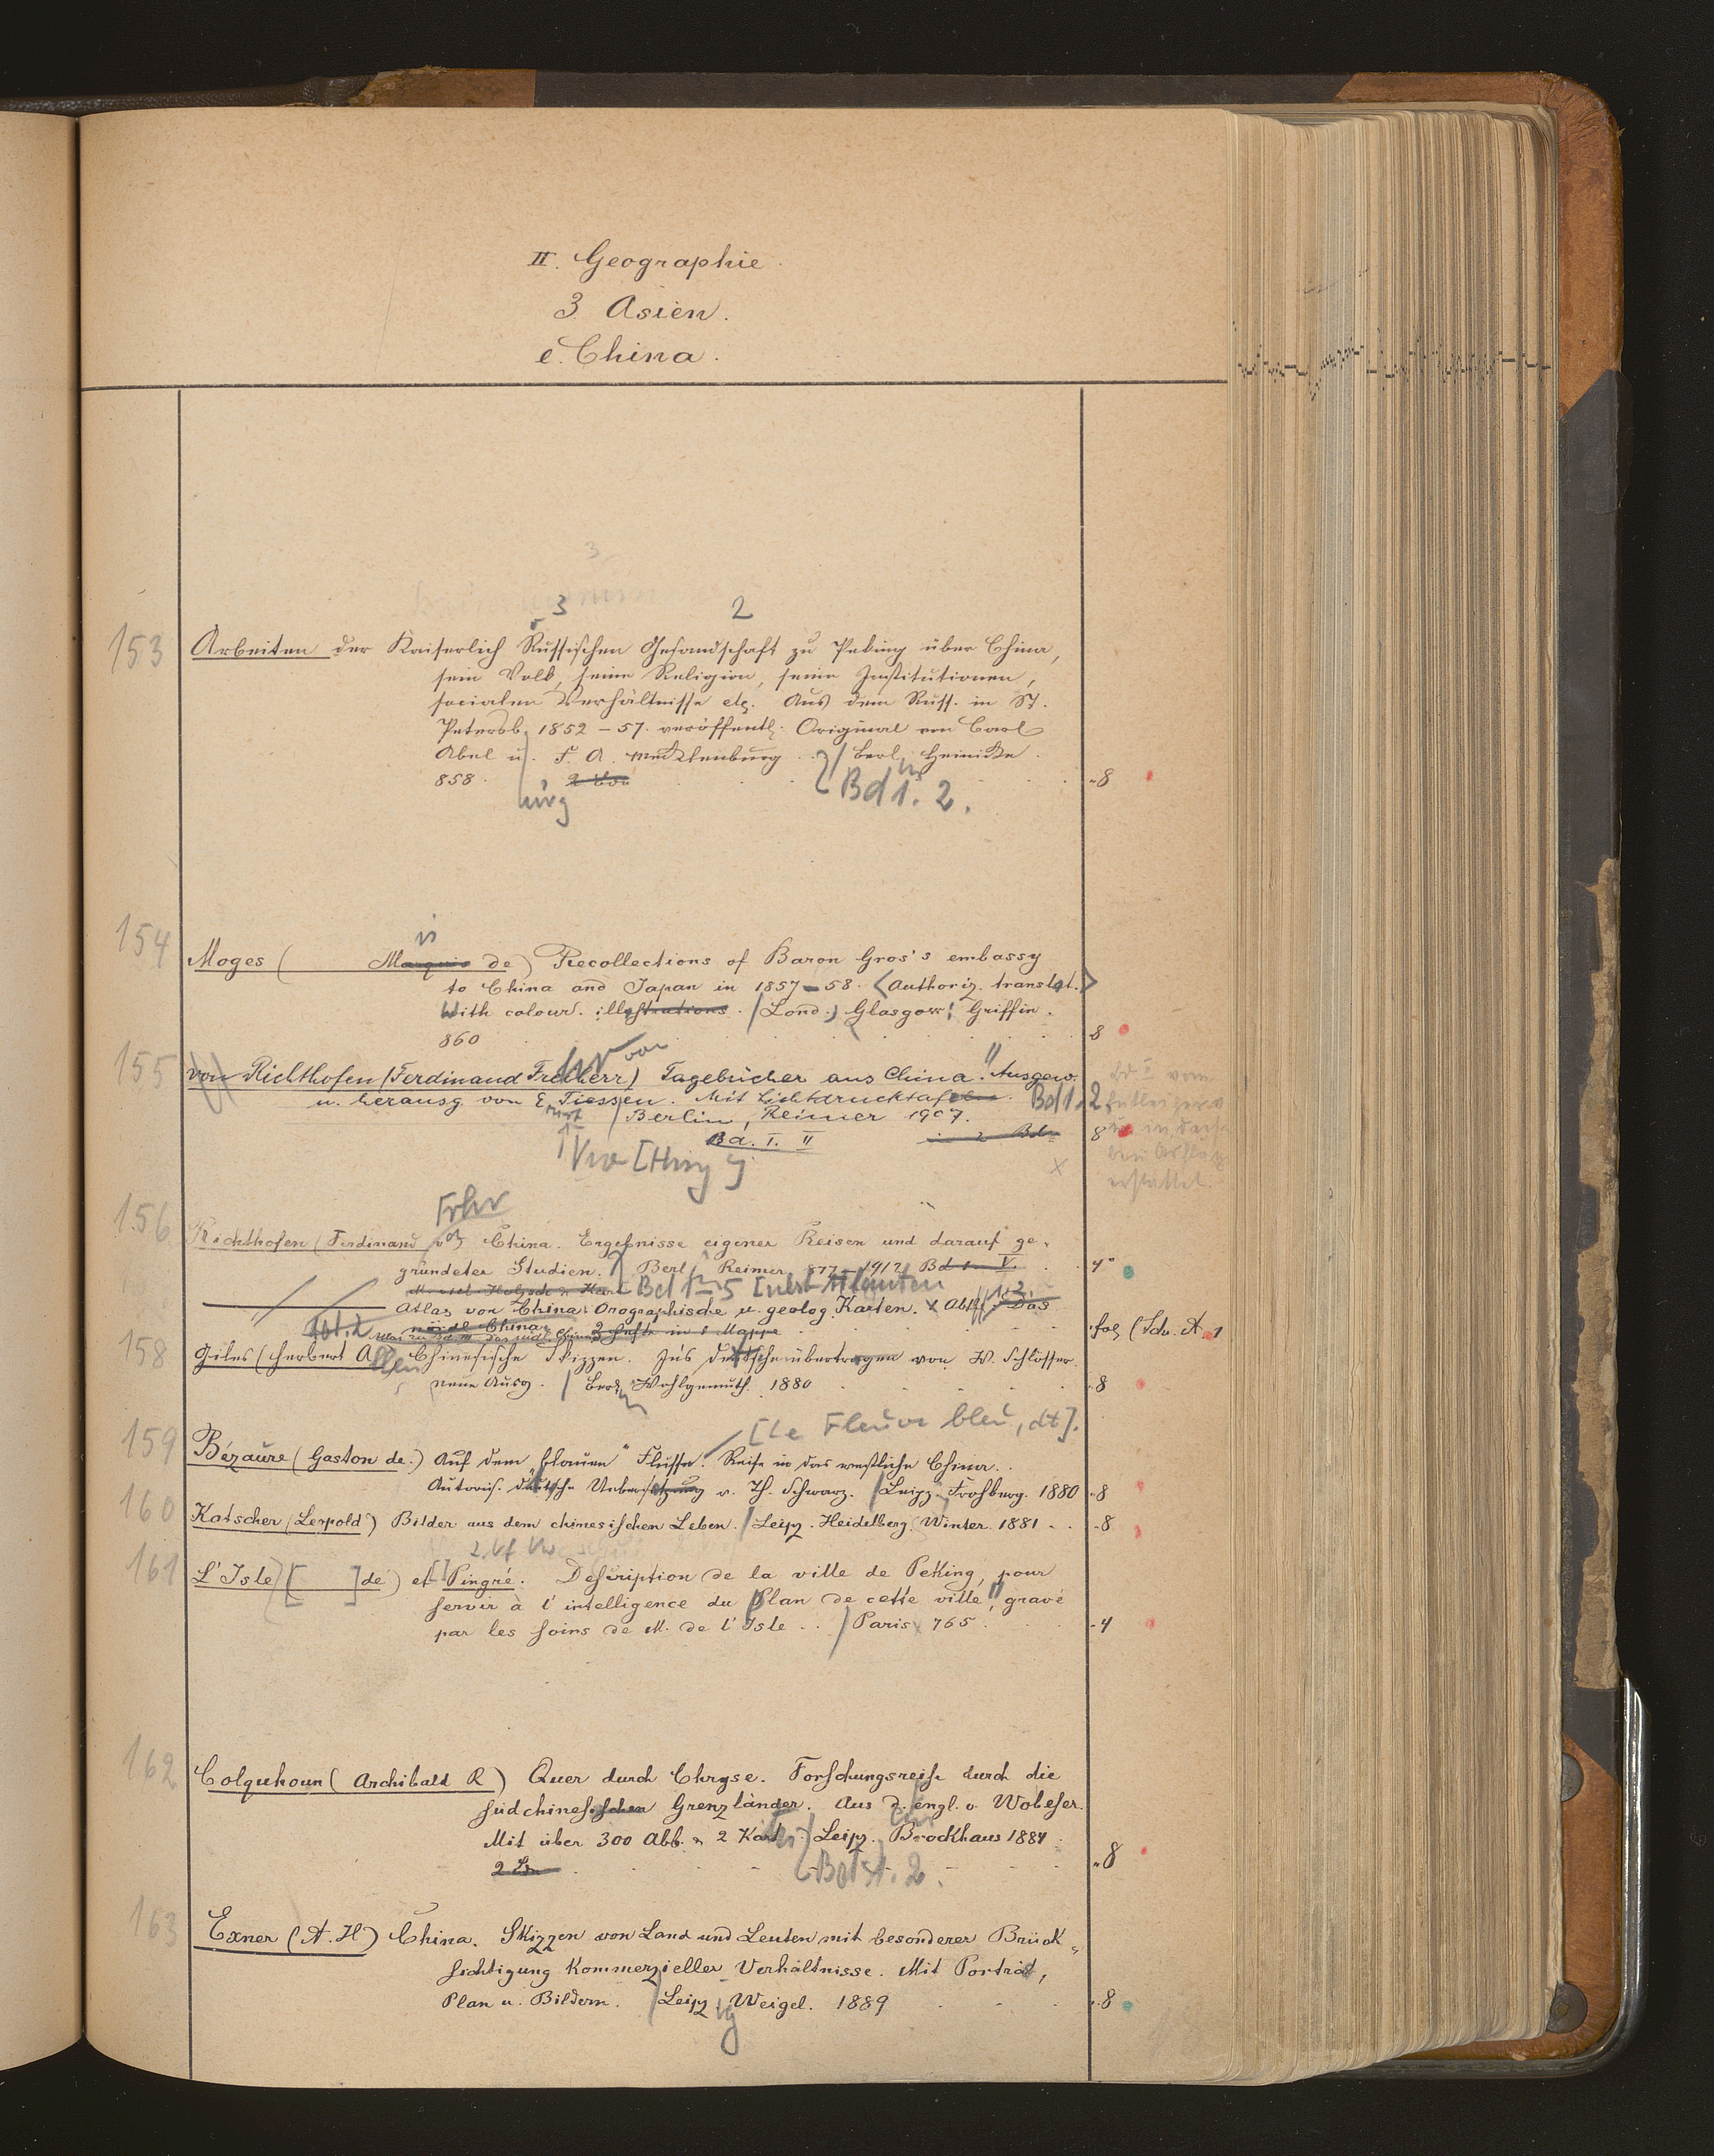 II. Geographie.
3. Asien.
e. China.
3
3 2
153 Arbeiten der Kaiserlich Russischen Gesandschaft zu Peking über China,
sein Volk, seine Religion, seine Institutionen,
socialen Verhältnisse etc. Aus dem Russ. in St.
Petersb. 1852–57. veröffentl. Original von Carl
Abel u. F. A. Mecklenburg. / Berl. Heinicke.
858. -8
Bd 1. 2.
154 Moges ( Marquis de) Recollections of Baron Gros's embassy
to China and Japan in 1857–58. <Authoriz. translat.>
With colour. illustrations. / Lond., Glasgow: Griffin.
860 8
155 von Richthofen (Ferdinand Freiherr) Tagebücher aus China. Ausgew.
u. herausg. von E. Tiessen. Mit Lichtdrucktafeln. Bd 1. 2
/ Berlin, Reimer 1907.
Bd. I. II in 2 Bdn 8
Frhr
156 Richthofen (Ferdinand v.) China. Ergebnisse eigener Reisen und darauf ge-
gründeter Studien. Berl. Reimer 877–1912 Bd 1– V. 4°
Bd 1–5 [nebst] Atlanten
Atlas von China. Orographische u. geolog. Karten. Abth. 1. 2. Das
nördl. China 2 Hefte in 1 Mappe fol (Schr. A. 1
Atlas zu Bd. III. Das südl. China
158 Giles (Herbert Allen) Chinesische Skizzen. In's Deutsche übertragen von W. Schlösser.
neue Ausg. / Berl. Wohlgemuth. 1880 -8
[Le Fleuve bleu, dt].
159 Bézaure (Gaston de.) Auf dem "blauen" Flusse. Reise in das westliche China.
Autoris. deutsche Uebersetzung v. Th. Schwarz. / Leipz. Frohberg. 1880 -8
160 Katscher (Leopold) Bilder aus dem chinesischen Leben. / Leipz. Heidelberg. Winter. 1881 -8
161 L'Isle [ ] de) et Pingré. Description de la ville de Peking, pour
servir à l'intelligence du Plan de cette ville, gravé
par les soins de M. de l'Isle. / Paris 765. -4
162 Colquhoun (Archibald R) Quer durch Chryse. Forschungsreise durch die
südchinesischen Grenzländer. Aus d. engl. v. Wobeser.
Mit über 300 Abb. u. 2 Kart. / Leipz. Brockhaus 1884
Bd 1. 2. -8
163 Exner (A. H) China. Skizzen von Land und Leuten mit besonderer Brück-
sichtigung Kommerzieller Verhältnisse. Mit Porträt,
Plan u. Bildern. / Leipz. Weigel. 1889 -8